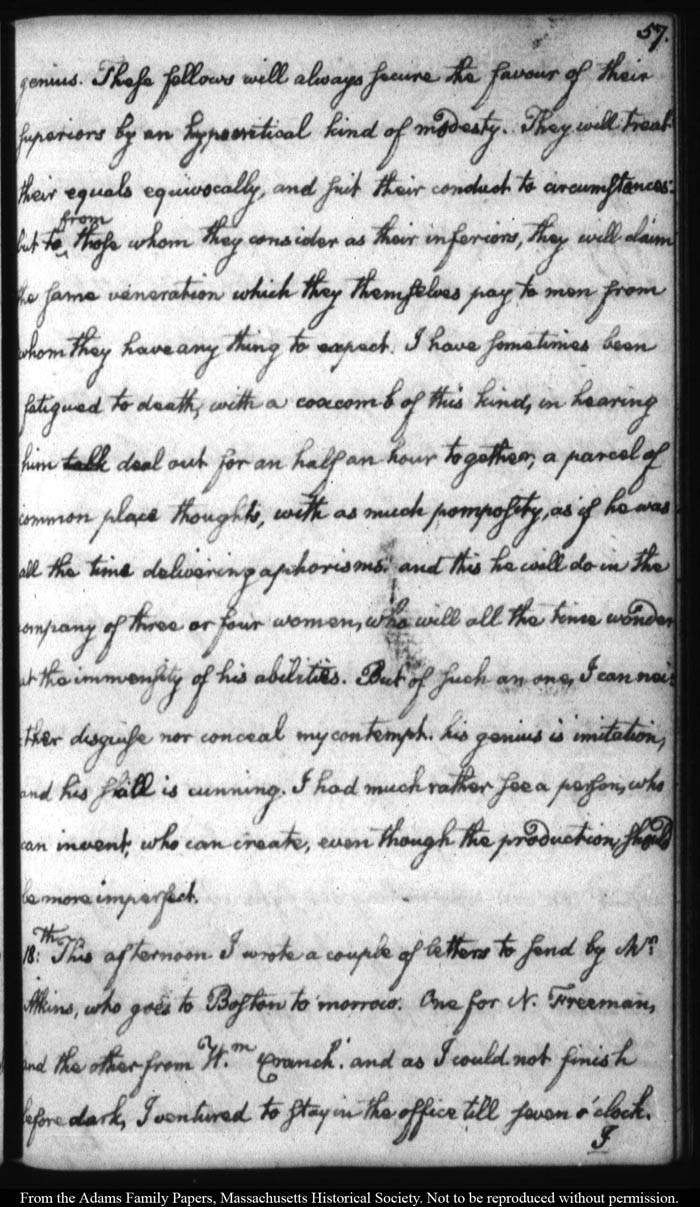 57.
genius. These fellows will always secure the favour of their
superiors by an hypocritical kind of modesty. They will treat
their equals equivocally, and suit their conduct to circumstances:
from
but to those whom they consider as their inferiors, they will claim
the same veneration which they themselves pay to men from
whom they have any thing to expect. I have sometimes been
fatigued to death, with a coxcomb of this kind, in hearing
him talk deal out for an half an hour together, a parcel of
common place thoughts, with as much pomposity, as if he was
all the time delivering aphorisms. and this he will do in the
company of three or four women, who will all the time wonder
at the immensity of his abilities. But of such an one, I can nei:
:ther disguise nor conceal my contempt. his genius is imitation,
and his skill is cunning. I had much rather see a person, who
can invent, who can create, even though the production, should
be more imperfect.
18:th This afternoon I wrote a couple of letters to send by Mr
Atkins, who goes to Boston to'morrow. One for N. Freeman,
and the other from Wm Cranch. and as I could not finish
before dark, I ventured to stay in the office till seven o'clock.
I
From the Adams Family Papers, Massachusetts Historical Society. Not to be reproduced without permission.